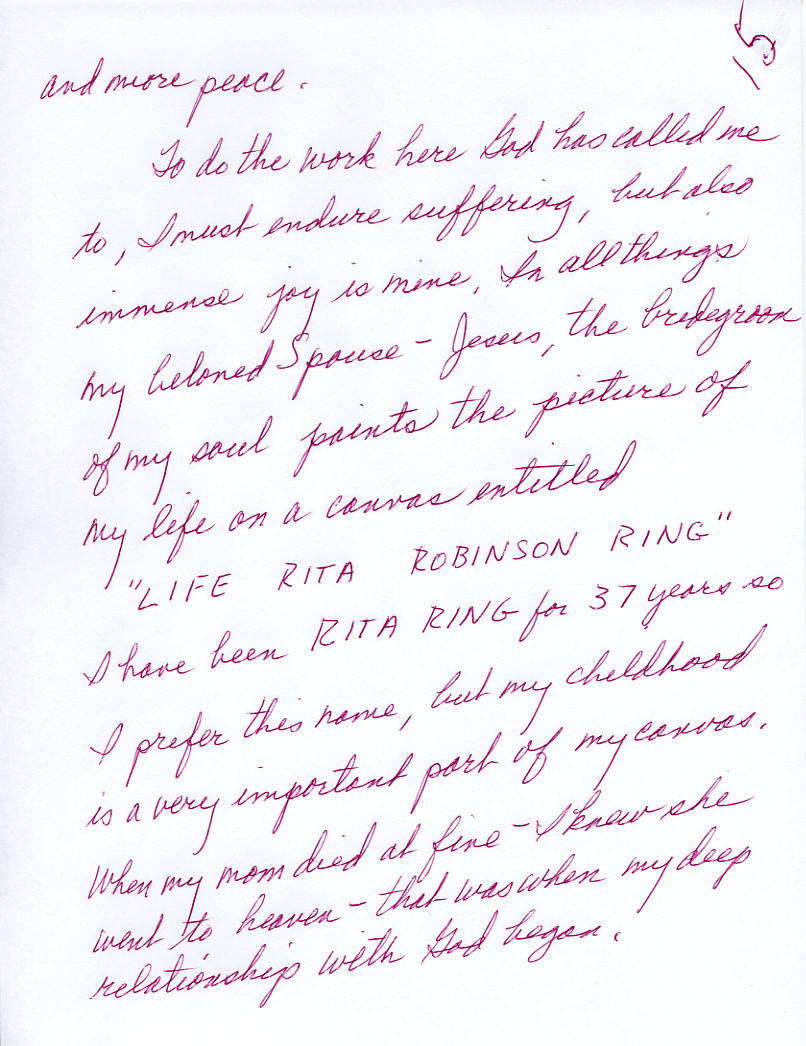 15
and more peace.
To do the work here God has called me
to, I must endure suffering, but also
immense joy is mine. In all things
my beloved Spouse – Jesus, the bridegroom
of my soul paints the picture of
my life on a canvas entitled
"LIFE RITA ROBINSON RING"
I have been RITA RING for 37 years so
I prefer this name, but my childhood
is a very important part of my canvas.
When my mom died at five – I knew she
went to heaven – that was when my deep
relationship with God began.